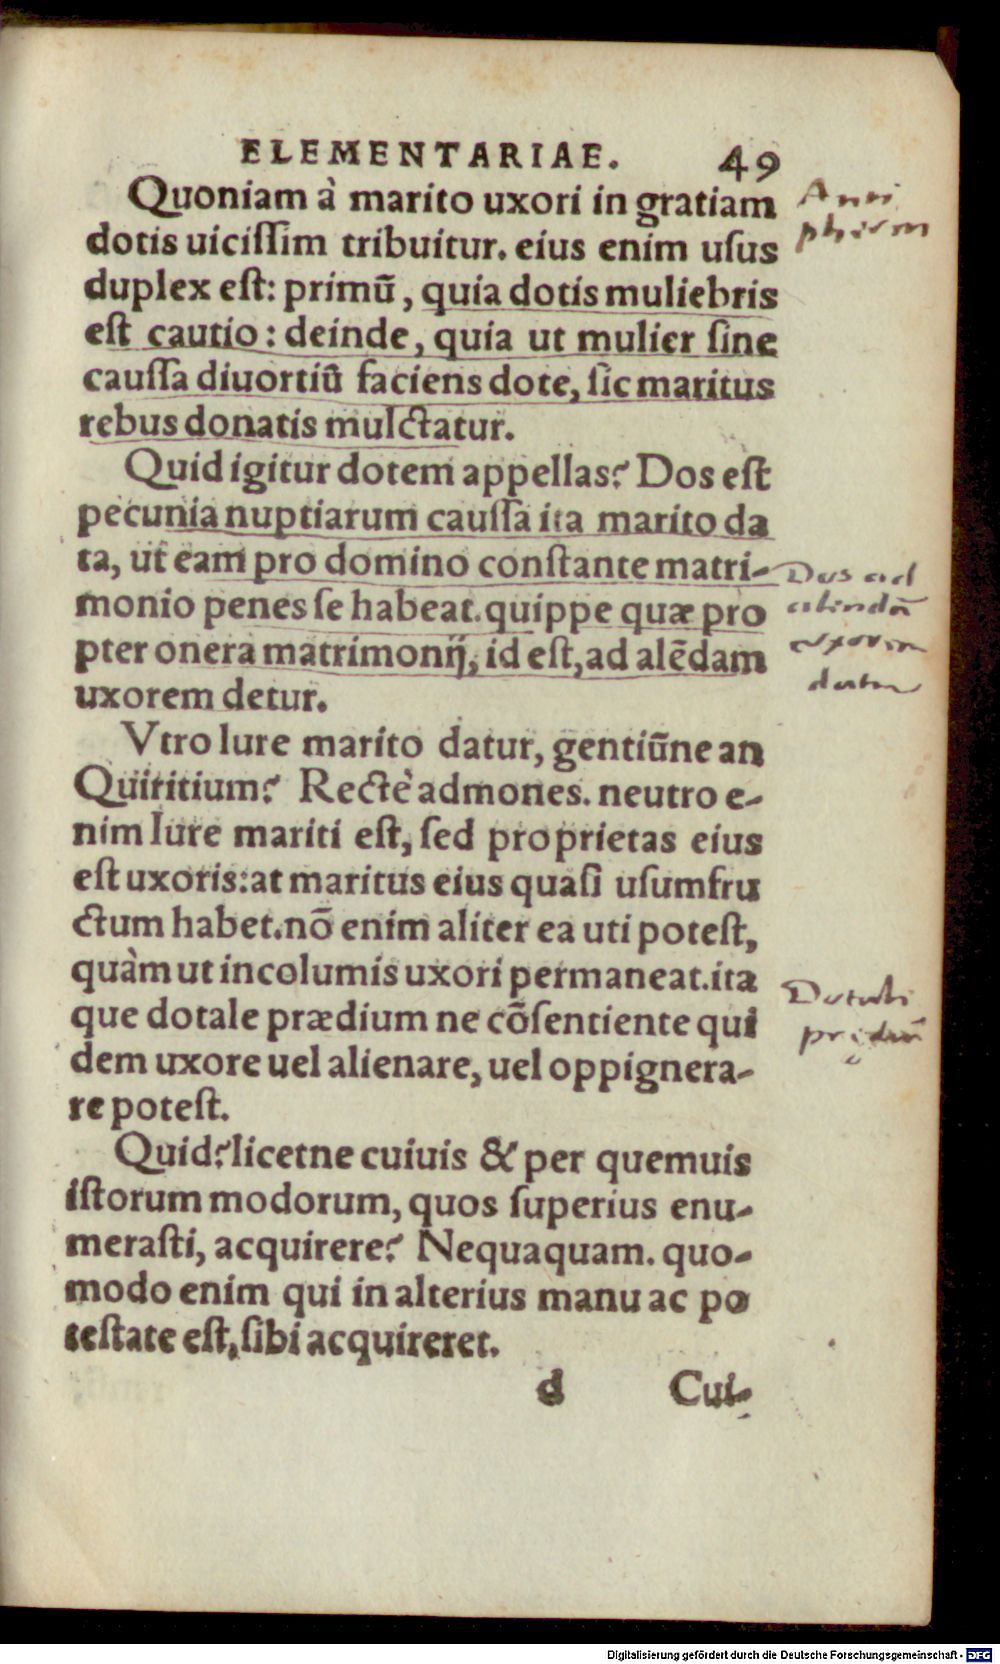 ELEMENTARIAE. 49
Quoniam à marito uxori in gratiam
dotis uiciſſim tribuitur. eius enim uſus
duplex eſt: primũ, quia dotis muliebris
eſt cautio: deinde, quia ut mulier ſine
cauſſa diuortiũ faciens dote, ſic maritus
rebus donatis mulctatur.
Quid igitur dotem appellas? Dos eſt
pecunia nuptiarum cauſſa ita marito da
ta, ut eam pro domino conſtante matri-
monio penes ſe habeat. quippe quæ pro
pter onera matrimonij, id eſt, ad alẽdam
uxorem detur.
Vtro Iure marito datur, gentiũne an
Quiritium? Rectè admones. neutro e-
nim Iure mariti eſt, ſed proprietas eius
eſt uxoris: at maritus eius quaſi uſumfru
ctum habet. nõ enim aliter ea uti poteſt,
quàm ut incolumis uxori permaneat. ita
que dotale prædium ne cõſentiente qui
dem uxore uel alienare, uel oppignera-
re poteſt.
Quid? licetne cuiuis & per quemuis
iſtorum modorum, quos ſuperius enu-
meraſti, acquirere? Nequaquam. quo-
modo enim qui in alterius manu ac po
teſtate eſt, ſibi acquireret.
d Cui-
Dos ad
uxorem
Digitalisierung gefördert durch die Deutsche Forschungsgemeinschaft - DFG